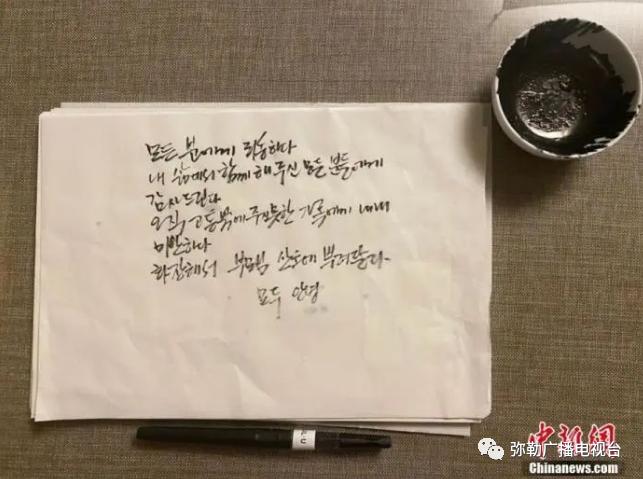 모든 분에게 죄송하다
내 삶에서 함께 해주신 모든 분들에게
감사드린다
오직 고통밖에 주지못한 가족에게 내내
미안하다
화장해서 부모님 산소에 뿌려달라
모두 안녕
-U
中新网
弥勒广播电视台
Chinanews.com